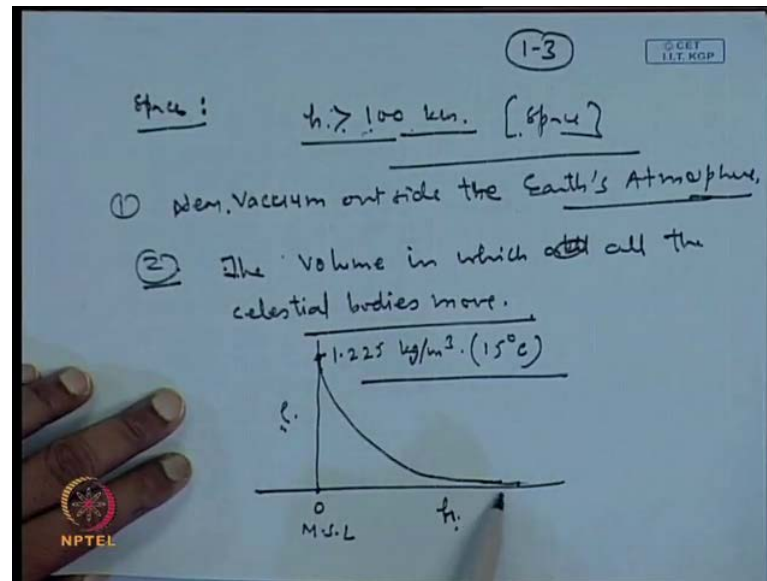 1-3
© CET
I.I.T. KGP
Space : h > 100 km. [Space]
① Near Vaccum outside the Earth's Atmosphere,
② The volume in which all the
celestial bodies move.
1.225 kg/m³. (15°C)
ρ.
0
h.
M.S.L
NPTEL